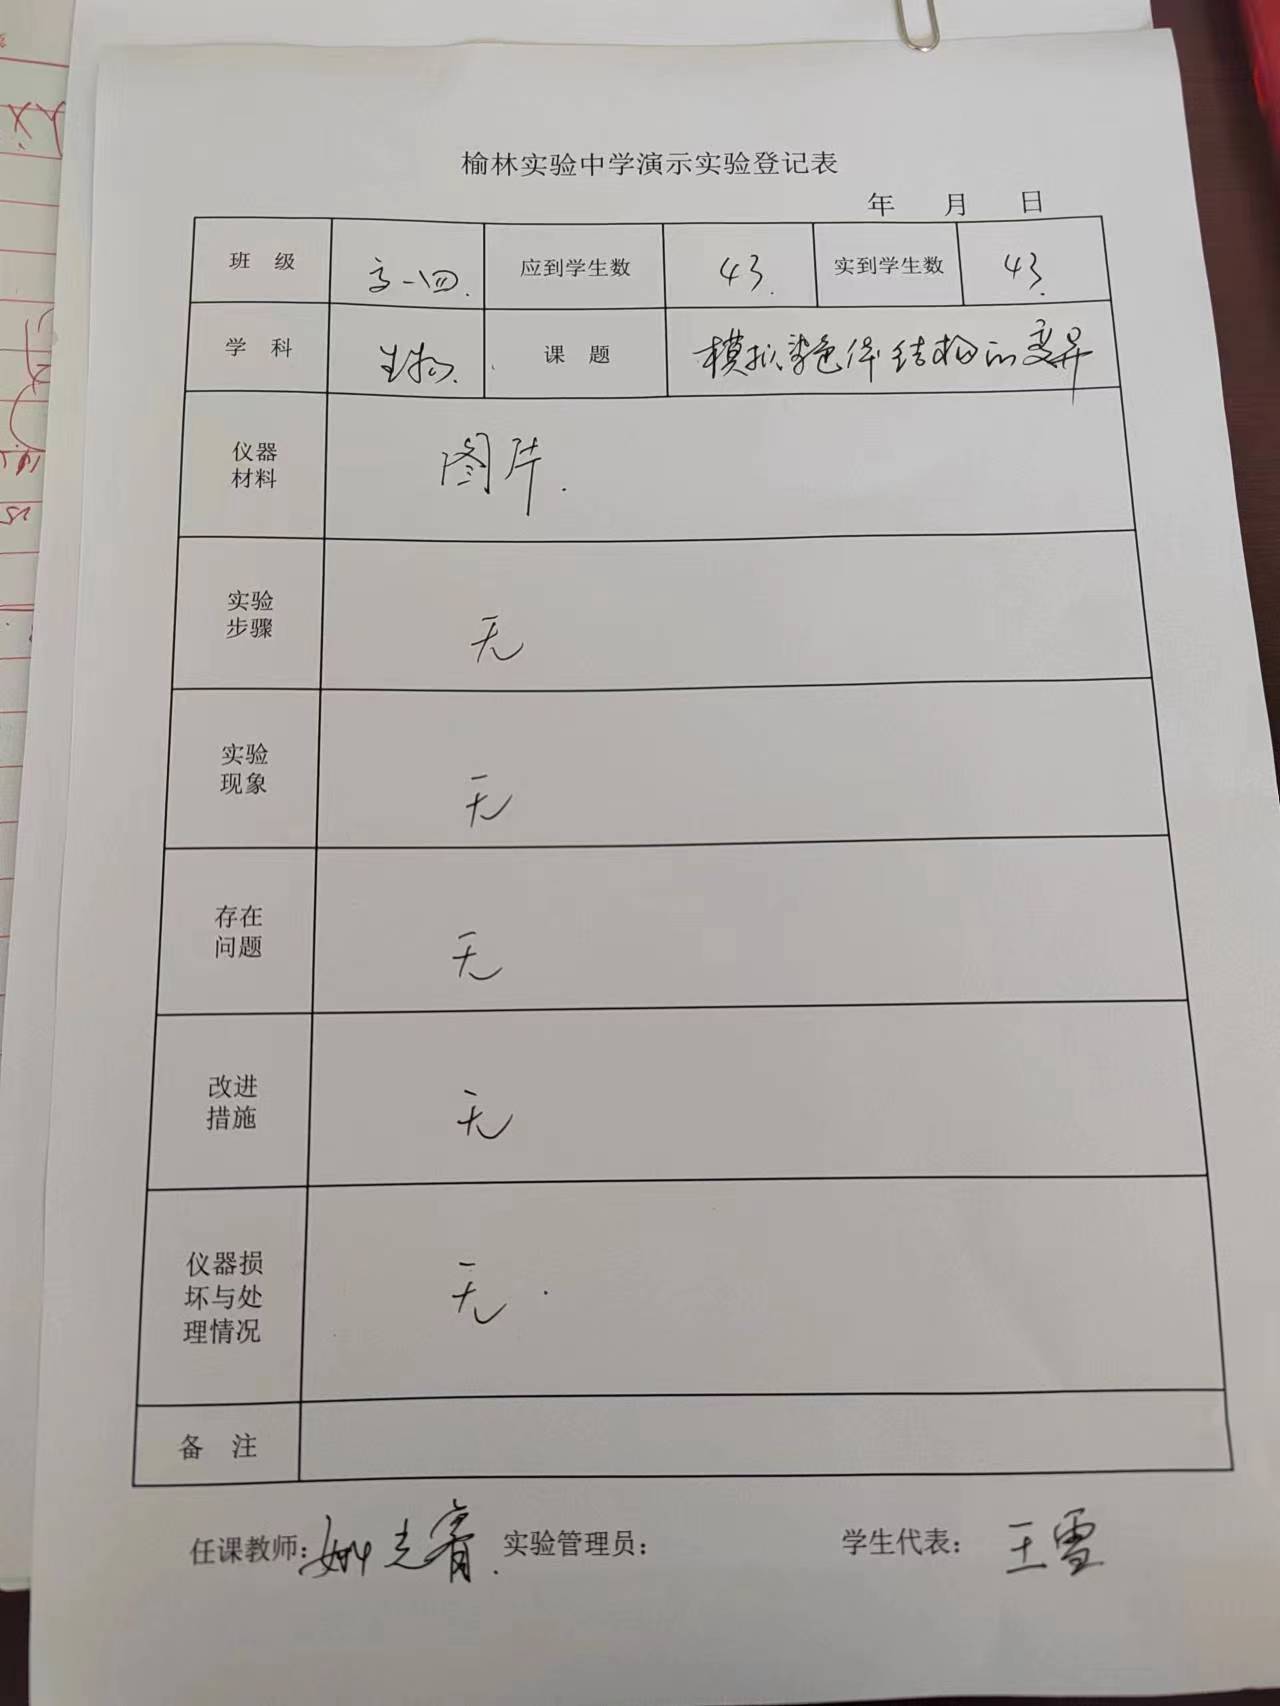 榆林实验中学演示实验登记表
年 月 日
班 级 高一四. 应到学生数 43. 实到学生数 43.
学 科 生物. 课 题 模拟染色体结构的变异
仪器
材料
图片.
实验
步骤
无
实验
现象
无
存在
问题
无
改进
措施
无
仪器损
坏与处
理情况
无.
备 注
任课教师: 实验管理员: 学生代表: 王雪